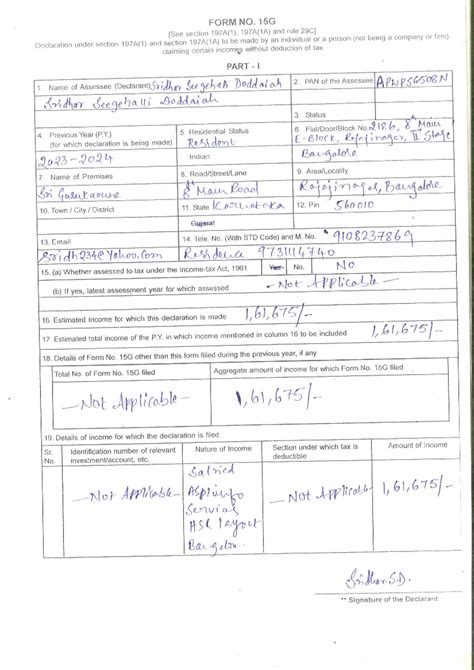 FORM NO. 15G
[See section 197A(1), 197A(1A) and rule 29C]
Declaration under section 197A(1) and section 197A(1A) to be made by an individual or a person (not being a company or firm)
claiming certain incomes without deduction of tax
PART - I
1. Name of Assessee (Declarant) Sridhar Seegehalli Doddaiah
Sridhar Seegehalli Doddaiah
2. PAN of the Assessee
3. Status
4. Previous Year (P.Y.)
(for which declaration is being made)
2023-2024
5. Residential Status
Resident
Indian
6. Flat/Door/Block No. 2186, 8th Main
E-Block, Rajajinagar, II Stage
Bangalore
7. Name of Premises
Sri
8. Road/Street/Lane
8 Main Road
9. Area/Locality
Rajajinagar, Bangalore
10. Town / City / District
11. State Karnataka
Gujarat
12. Pin 560010
13. Email
Sridh234@Yahoo.Com
14. Tele. No. (With STD Code) and M. No. 9108237869
Residence 9731114740
15. (a) Whether assessed to tax under the Income-tax Act, 1961
Yes- No. No
(b) If yes, latest assessment year for which assessed
- Not Applicable -
16. Estimated income for which this declaration is made 1,61,675/-
17. Estimated total income of the P.Y. in which income mentioned in column 16 to be included 1,61,675/-
18. Details of Form No. 15G other than this form filed during the previous year, if any
Total No. of Form No. 15G filed
Aggregate amount of income for which Form No. 15G filed
- Not Applicable -
1,61,675/-
19. Details of income for which the declaration is filed
Sr. No.
Identification number of relevant investment/account, etc.
Nature of Income
Section under which tax is deductible
Amount of Income
- Not Applicable -
Salried
HSR layout
- Not Applicable -
1,61,675/-
Sridhar.S.D.
** Signature of the Declarant